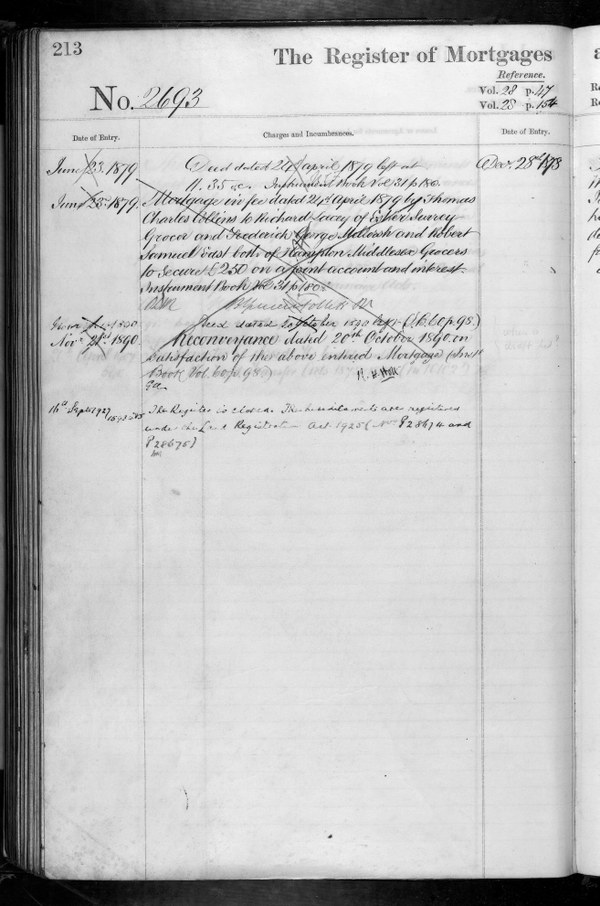 213
The Register of Mortgages
Reference.
No. 2693
Vol. 28 p. 47
Vol. 28 p. 154
Date of Entry.
Charges and Incumbrances.
Date of Entry.
June 23. 1879
Deed dated 24 April 1879 left at
Dec. 28th
11. 35 Instrument Book Vol 31 p 180.
June 23rd 1879.
Mortgage in fee dated 24th April 1879 by Thomas
Charles Collins to Richard Lacey of Esher Surrey
Grocer and Frederick George Mellersh and Robert
Samuel East both of Hampton Middlesex Grocers
to secure £250 on a joint account and interest.
Instrument Book Vol 31 p 180.
Deed dated 20 October 1890 (I.B. 60 p. 98.)
Novr. 21st 1890
Reconveyance dated 20th October 1890 in
satisfaction of the above entered Mortgage (Inst
Book Vol. 60 p. 98)
16th Sept 1927
The Register is closed. The hereditaments are registered
under the Land Registration Act 1925 (Nos P28674 and
P28675)